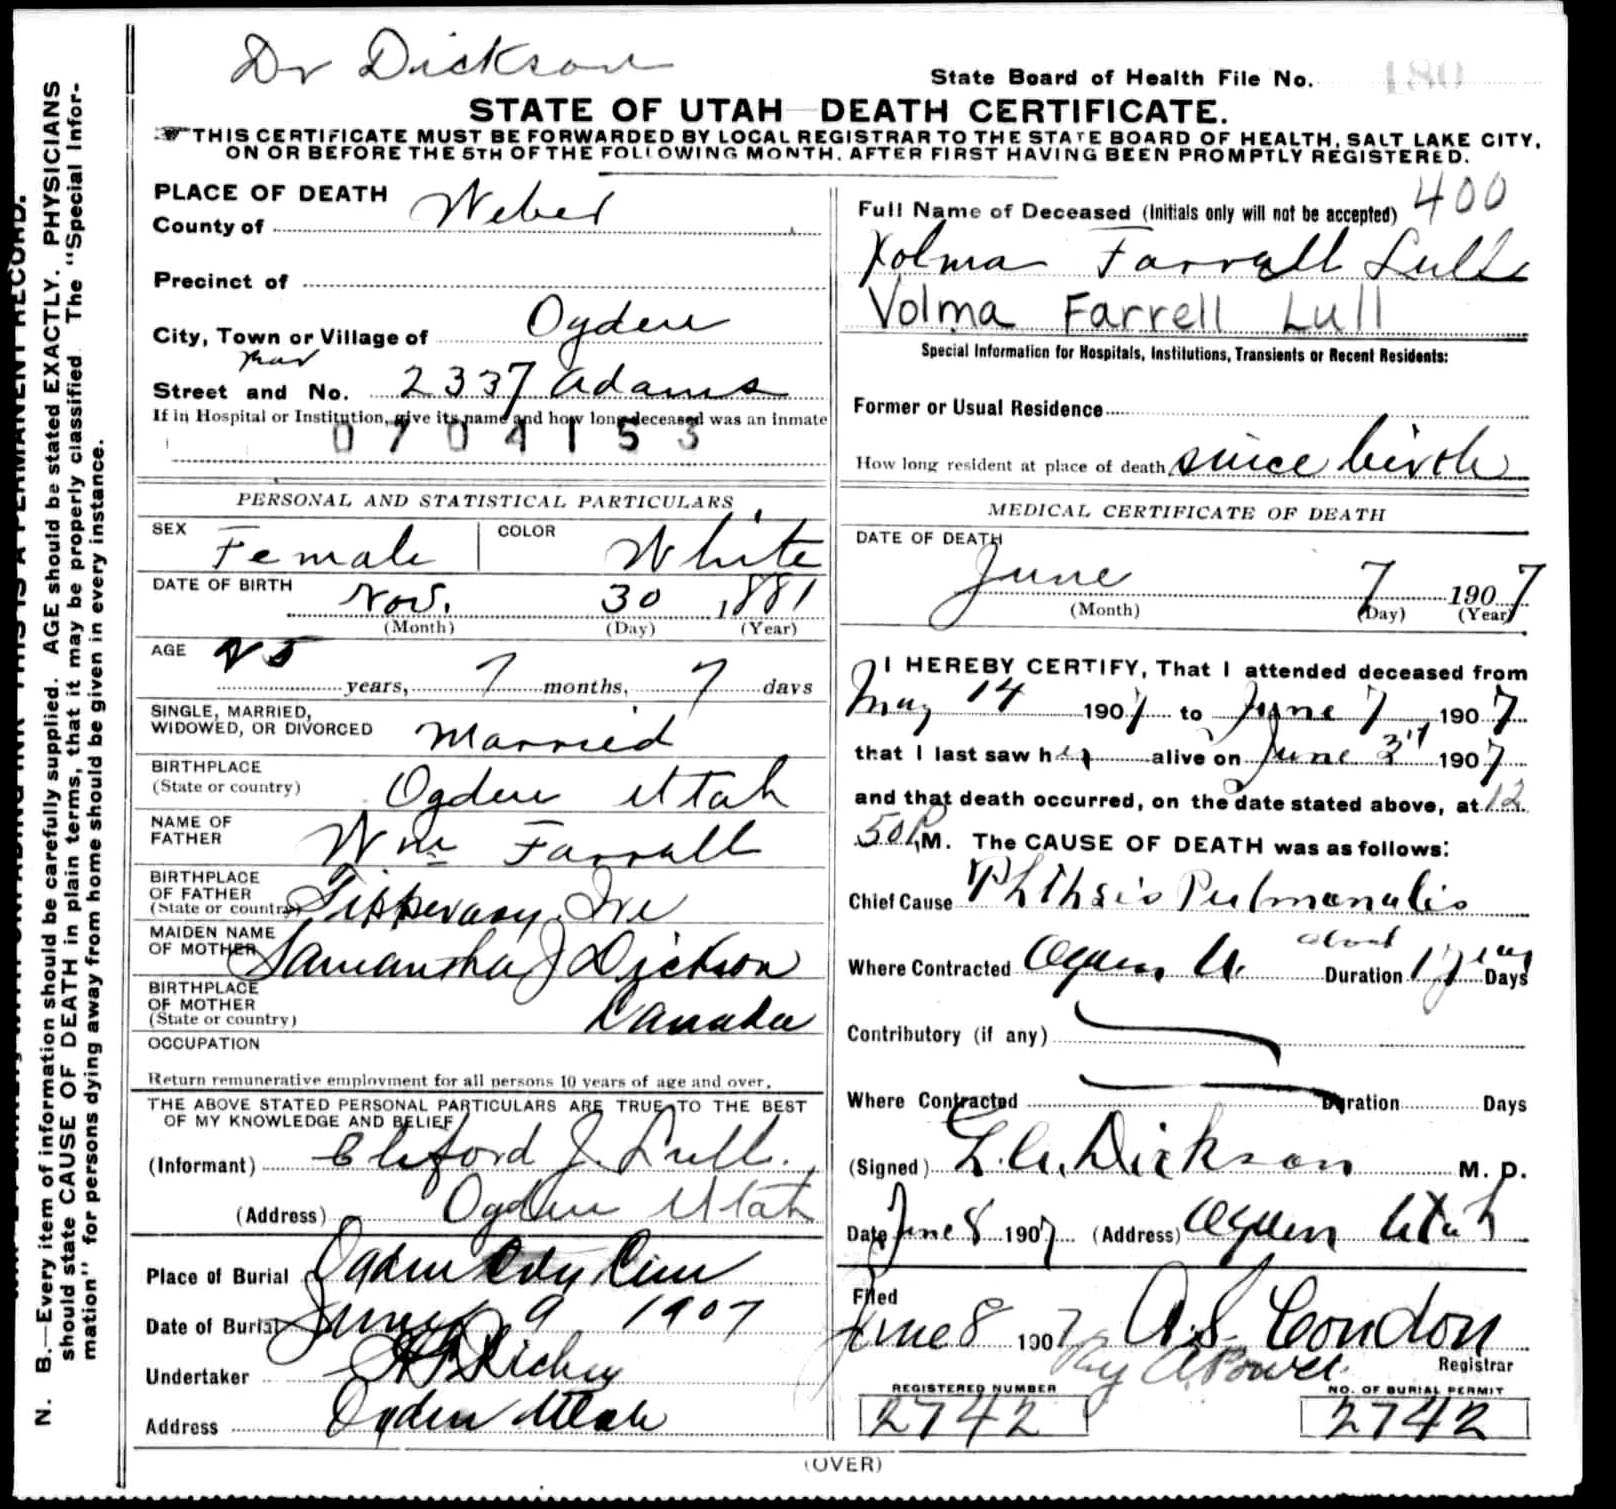 Dr Dickson
State Board of Health File No. 180
STATE OF UTAH—DEATH CERTIFICATE.
THIS CERTIFICATE MUST BE FORWARDED BY LOCAL REGISTRAR TO THE STATE BOARD OF HEALTH, SALT LAKE CITY,
ON OR BEFORE THE 5TH OF THE FOLLOWING MONTH, AFTER FIRST HAVING BEEN PROMPTLY REGISTERED.
PLACE OF DEATH
County of Weber
Precinct of
City, Town or Village of Ogden
rear
Street and No. 2337 Adams
If in Hospital or Institution, give its name and how long deceased was an inmate
0704153
PERSONAL AND STATISTICAL PARTICULARS
SEX Female COLOR White
DATE OF BIRTH Nov. 30 1881
(Month) (Day) (Year)
AGE 25 years, 7 months, 7 days
SINGLE, MARRIED,
WIDOWED, OR DIVORCED Married
BIRTHPLACE
(State or country) Ogden Utah
NAME OF
FATHER Wm Farrall
BIRTHPLACE
OF FATHER
(State or country) Tipperary, Ire
MAIDEN NAME
OF MOTHER Samantha J Dickson
BIRTHPLACE
OF MOTHER
(State or country) Canada
OCCUPATION
Return remunerative employment for all persons 10 years of age and over.
THE ABOVE STATED PERSONAL PARTICULARS ARE TRUE TO THE BEST
OF MY KNOWLEDGE AND BELIEF
(Informant) Cliford J. Lull.
(Address) Ogden Utah
Place of Burial Ogden City Cem
Date of Burial June 9 1907
Undertaker Richey
Address Ogden Utah
Full Name of Deceased (Initials only will not be accepted) 400
Volma Farrall Lull
Volma Farrell Lull
Special Information for Hospitals, Institutions, Transients or Recent Residents:
Former or Usual Residence
How long resident at place of death since birth
MEDICAL CERTIFICATE OF DEATH
DATE OF DEATH
June 7 1907
(Month) (Day) (Year)
I HEREBY CERTIFY, That I attended deceased from
May 14 1907 to June 7, 1907
that I last saw her alive on June 3rd 1907
and that death occurred, on the date stated above, at 12
50 P.M. The CAUSE OF DEATH was as follows:
Chief Cause Phthsis Pulmonalis
Where Contracted Ogden U. Duration about 1 year Days
Contributory (if any)
Where Contracted Duration Days
(Signed) Dickson M. D.
Date June 8 1907 (Address) Ogden Utah
Filed
June 8 1907 A. S. Condon
Registrar
REGISTERED NUMBER
2742
NO. OF BURIAL PERMIT
2742
(OVER)
N. B.—Every item of information should be carefully supplied. AGE should be stated EXACTLY. PHYSICIANS
should state CAUSE OF DEATH in plain terms, that it may be properly classified. The "Special Infor-
mation" for persons dying away from home should be given in every instance.
THIS IS A PERMANENT RECORD.